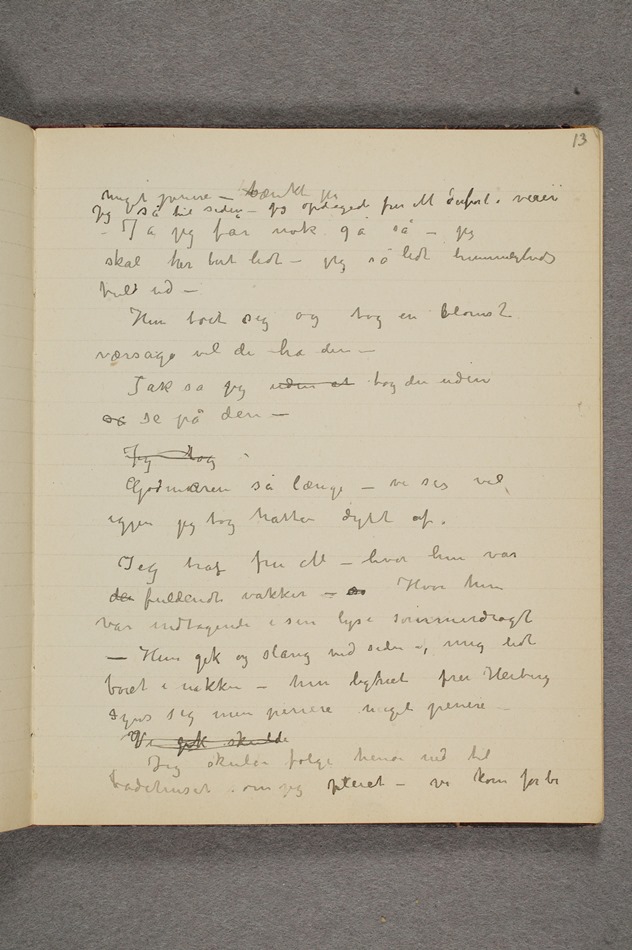 13
meget penere – tænkt jeg
Jeg så til siden – jeg opdaged fru M
– Ja jeg får nok gå så – jeg
skal her bort lidt – jeg så lidt hemmeligheds
fuld ud –
Hun bøct sig og tog en blomst
værsago vil de ha den –
Tak sa jeg uden at tog den uden
så se på den –
Jeg tog
Godmoren så længe – vi ses vel
igjen jeg tog hatten dybt af.
Jeg traf fru M – hvor hun var
der fuldendt vakker – Hvor hun
var indtagende i sin lyse sommerdragt
– Hun gik og slang ved siden –, meg lidt
bøiet i nakken – hun lignet fru Heiberg
synes jeg men penere meget penere –
Vi gik skulde
Jeg skulde følge hende ned til
badehuset om jeg pleiet – vi kom forbi